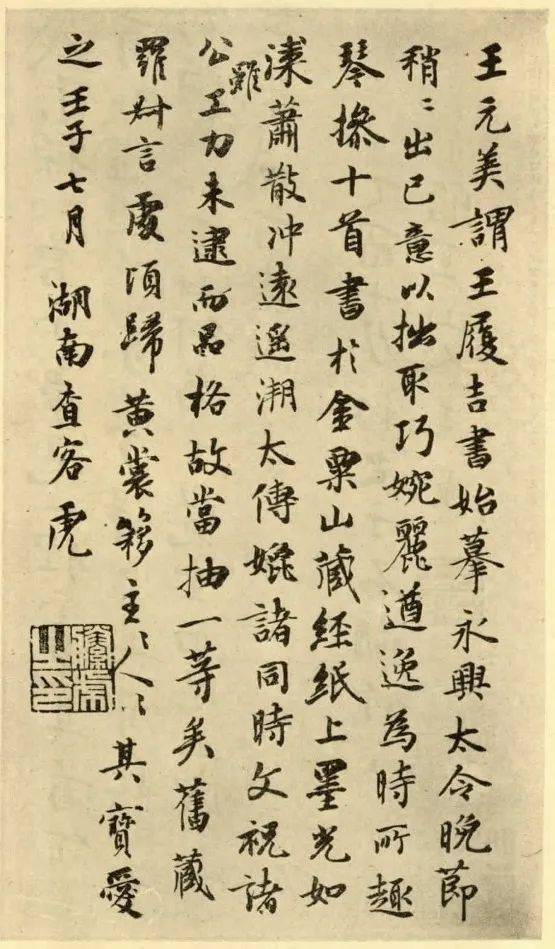 王元美謂王履吉書始摹永興太令晚節
稍〻出已意以拙取巧婉麗遒逸為時所趣
琴摻十首書於金粟山藏經紙上墨光如
漆蕭散冲遠遥溯太傅媲諸同時文祝諸
公雖工力未逮而品格故當抽一等矣舊藏
羅叔言處頃歸黃裳簃主〻人〻其寶愛
之壬子七月 湖南查客虎